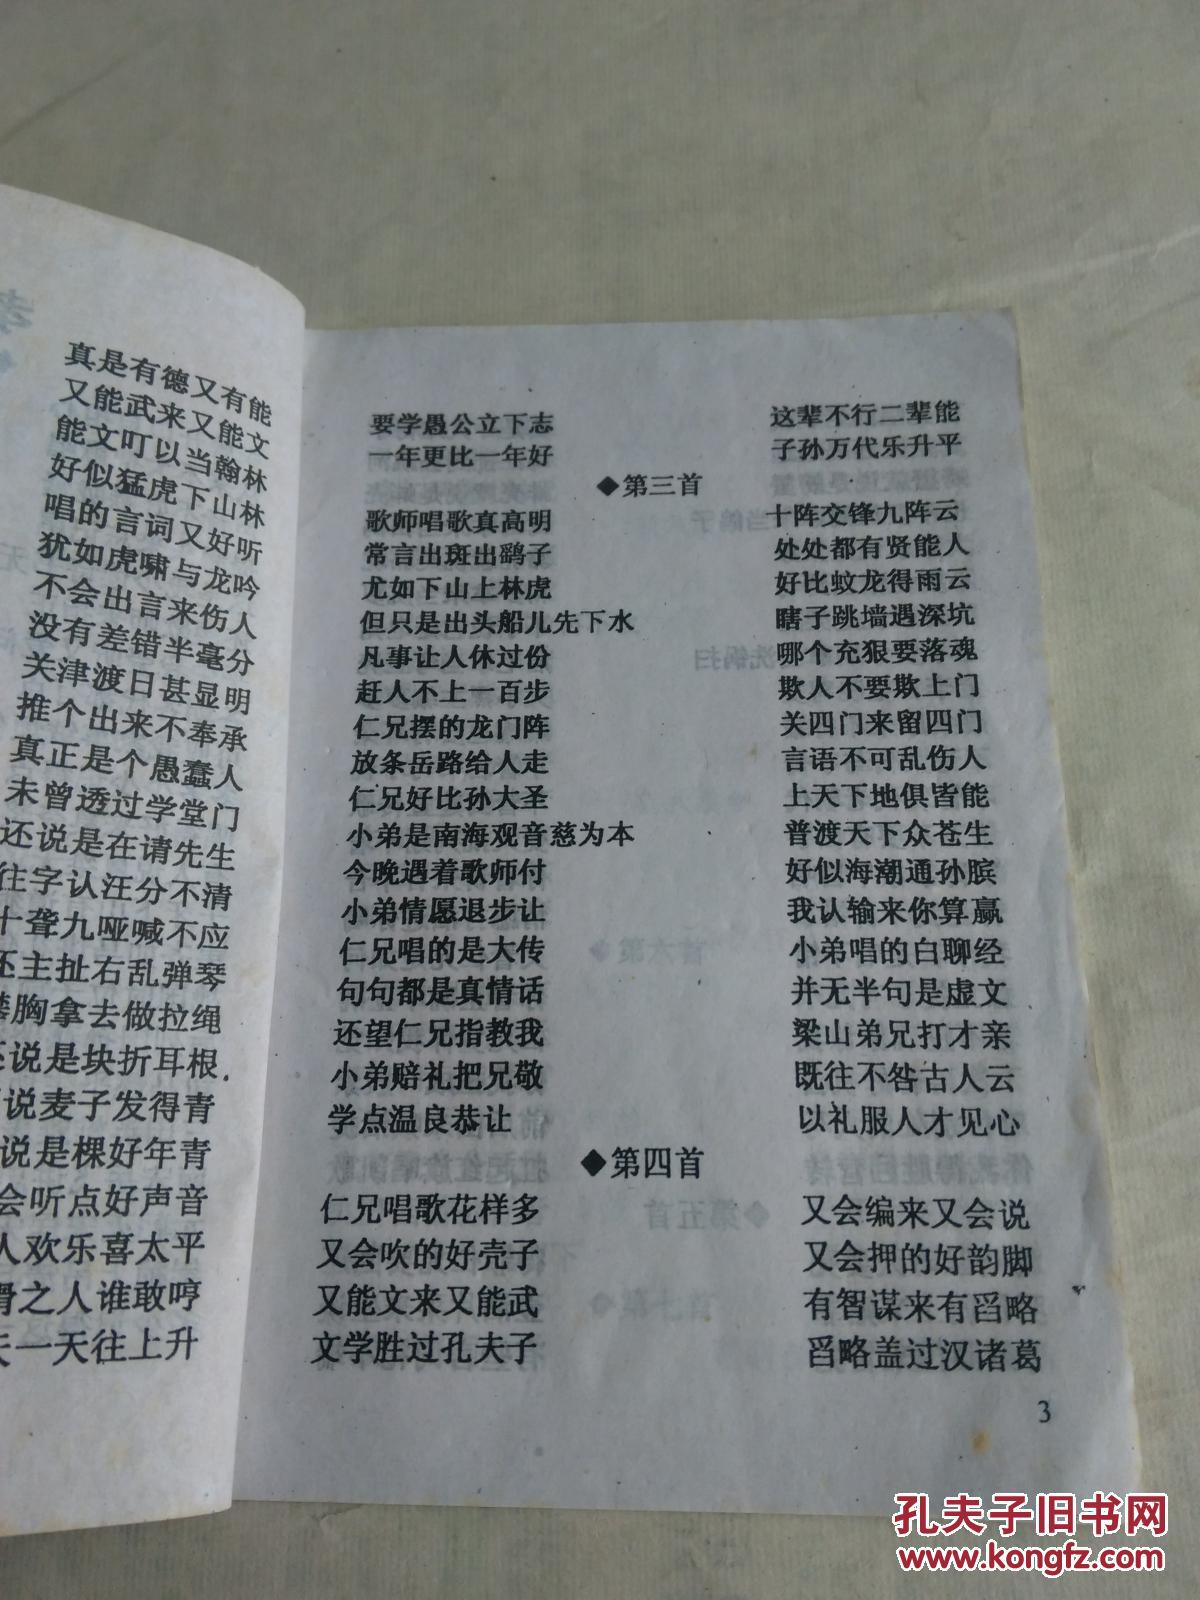 真是有德又有能
又能武来又能文
能文叮以当翰林
好似猛虎下山林
唱的言词又好听
犹如虎啸与龙吟
不会出言来伤人
没有差错半毫分
关津渡日甚显明
推个出来不奉承
真正是个愚蠢人
未曾透过学堂门
还说是在请先生
往字认汪分不清
十聋九哑喊不应
主扯右乱弹琴
胸拿去做拉绳
说是块折耳根
说麦子发得青
说是棵好年青
会听点好声音
人欢乐喜太平
之人谁敢哼
天一天往上升
要学愚公立下志 这辈不行二辈能
一年更比一年好 子孙万代乐升平
◆第三首
歌师唱歌真高明 十阵交锋九阵云
常言出斑出鹞子 处处都有贤能人
尤如下山上林虎 好比蛟龙得雨云
但只是出头船儿先下水 瞎子跳墙遇深坑
凡事让人休过份 哪个充狠要落魂
赶人不上一百步 欺人不要欺上门
仁兄摆的龙门阵 关四门来留四门
放条岳路给人走 言语不可乱伤人
仁兄好比孙大圣 上天下地俱皆能
小弟是南海观音慈为本 普渡天下众苍生
今晚遇着歌师付 好似海潮通孙膑
小弟情愿退步让 我认输来你算赢
仁兄唱的是大传 小弟唱的白聊经
句句都是真情话 并无半句是虚文
还望仁兄指教我 梁山弟兄打才亲
小弟赔礼把兄敬 既往不咎古人云
学点温良恭让 以礼服人才见心
◆第四首
仁兄唱歌花样多 又会编来又会说
又会吹的好壳子 又会押的好韵脚
又能文来又能武 有智谋来有舀略
文学胜过孔夫子 舀略盖过汉诸葛
3
孔夫子旧书网
www.kongfz.com